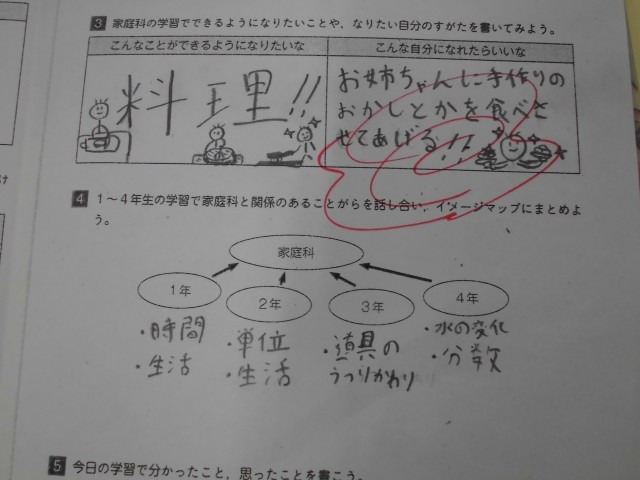 3 家庭科の学習でできるようになりたいことや，なりたい自分のすがたを書いてみよう。
こんなことができるようになりたいな
こんな自分になれたらいいな
料理!!
お姉ちゃんに手作りの
おかしとかを食べさ
せてあげる!!
4 1～4年生の学習で家庭科と関係のあることがらを話し合い，イメージマップにまとめよ
う。
家庭科
1年
2年
3年
4年
・時間
・生活
・単位
・生活
・道具の
うつりかわり
・水の変化
・分数
5 今日の学習で分かったこと，思ったことを書こう。